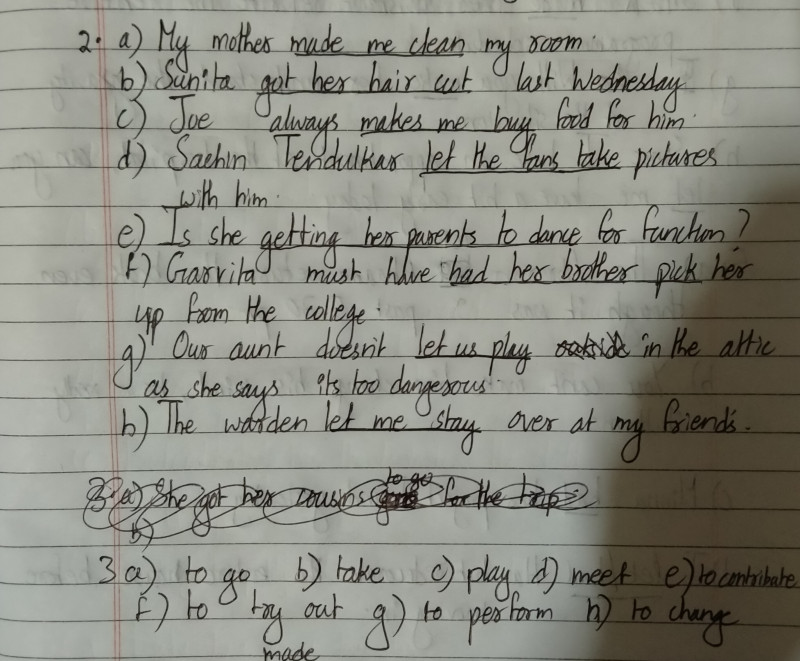 2. a) My mother made me clean my room.
b) Sunita got her hair cut last Wednesday
c) Joe always makes me buy food for him.
d) Sachin Tendulkar let the fans take pictures
with him.
e) Is she getting her parents to dance for function?
f) Garvita must have had her brother pick her
up from the college.
g) Our aunt doesn't let us play outside in the attic
as she says its too dangerous.
h) The warden let me stay over at my friend's.
3. a) She got her cousins to go for the trip
b)
3 a) to go b) take c) play d) meet e) to contribute
f) to try out g) to perform h) to change
made